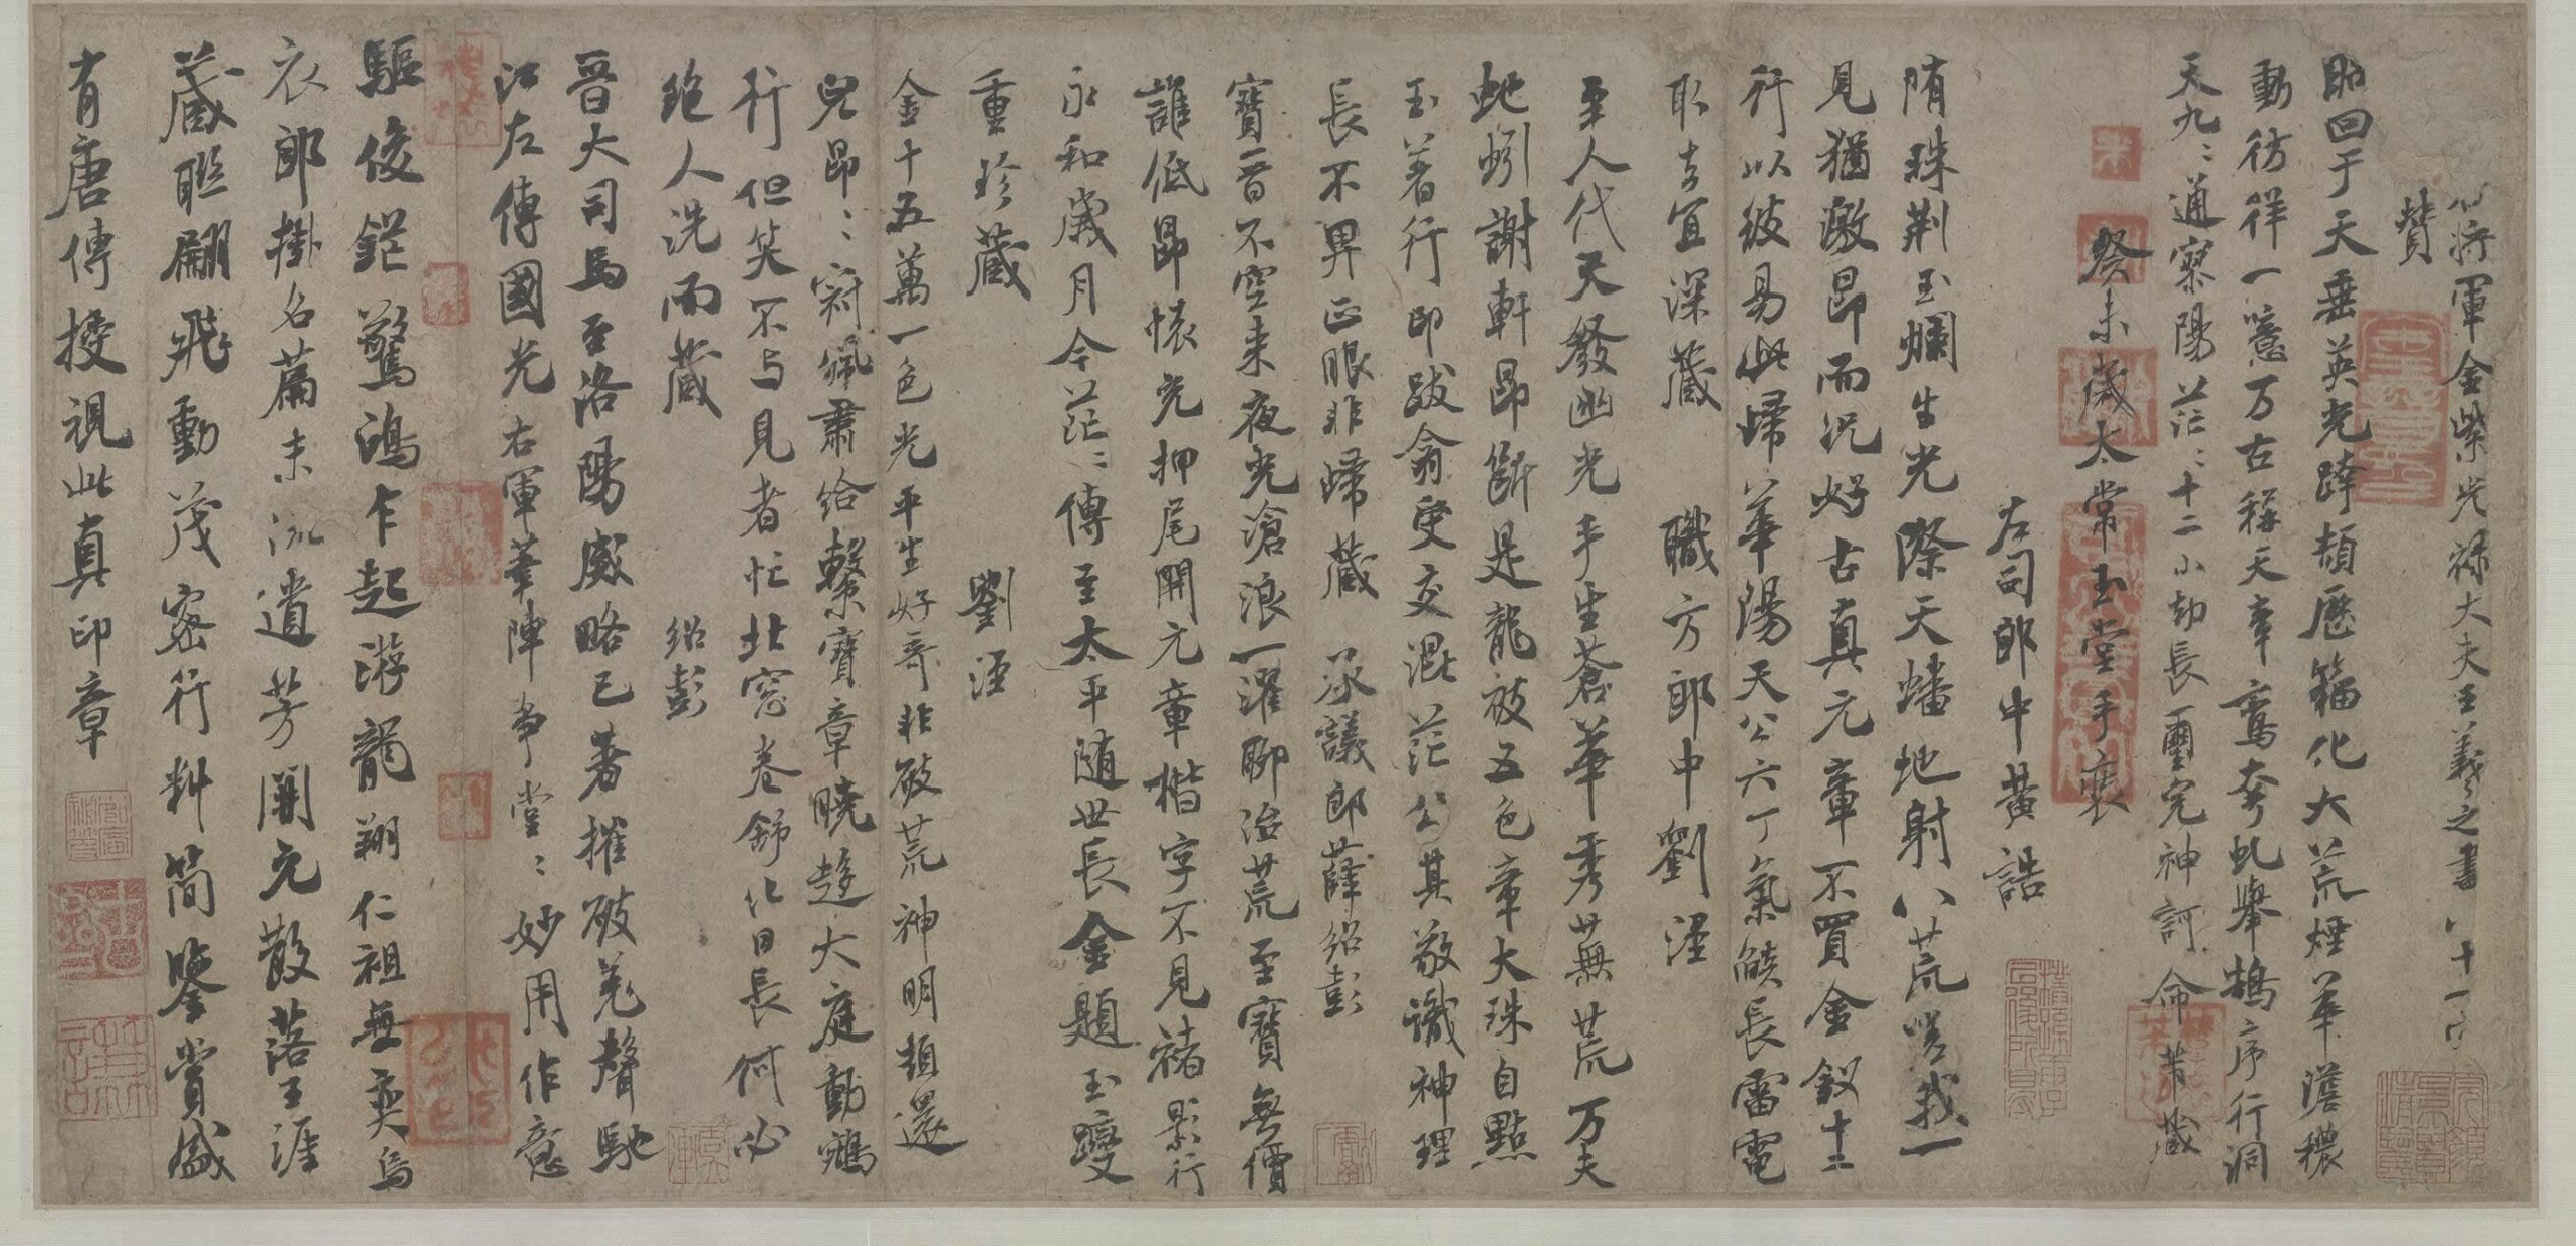 右將軍金紫光祿大夫王羲之書八十一字
贊
昭回于天垂英光跨頡歷籀化大荒煙華澹穠
動彷徉一噫万古稱天章鸞夸虬舉鵠序行洞
天九〻通寥陽茫〻十二小劫長璽完神訶命芾藏
癸未歲太常玉堂手裝
左司郎中黃誥
隋珠荆玉爛生光際天蟠地射八荒嗟我一
見猶激昂而況好古真元章不買金釵十二
行以彼易此歸華陽天公六丁氣燄長雷電
取去宜深藏 職方郎中劉涇
至人代天發幽光手生蒼華秀無荒万夫
虵蚓謝軒昂斷是龍被五色章大珠自點
玉著行印跋龠受交混茫公其敬識神理
長不畀正眼非歸藏 承議郎薛紹彭
寶晉不空来夜光滄浪一濯聊治荒至寶無價
誰低昂懐充押尾開元章楷字不見褚影行
永和歲月今茫〻傳至太平隨世長金題玉躞
重珍藏 劉涇
金十五萬一色光平生好奇非破荒神明頓還
兒昂〻冠佩肅給繫寶章曉趍大庭動鵷
行但笑不与見者忙北窓卷舒化日長何必
絶人洗而藏 紹彭
晉大司馬至洛陽威略已著摧破羌聲馳
江左傳國光右軍筆陣爭堂〻妙用作意
驅俊鋩驚鴻乍起游龍翔仁祖無奕烏
衣郎掛名篇末流遺芳開元散落王涯
藏聮翩飛動茂密行料簡鑒賞盛
有唐傳授視此真印章